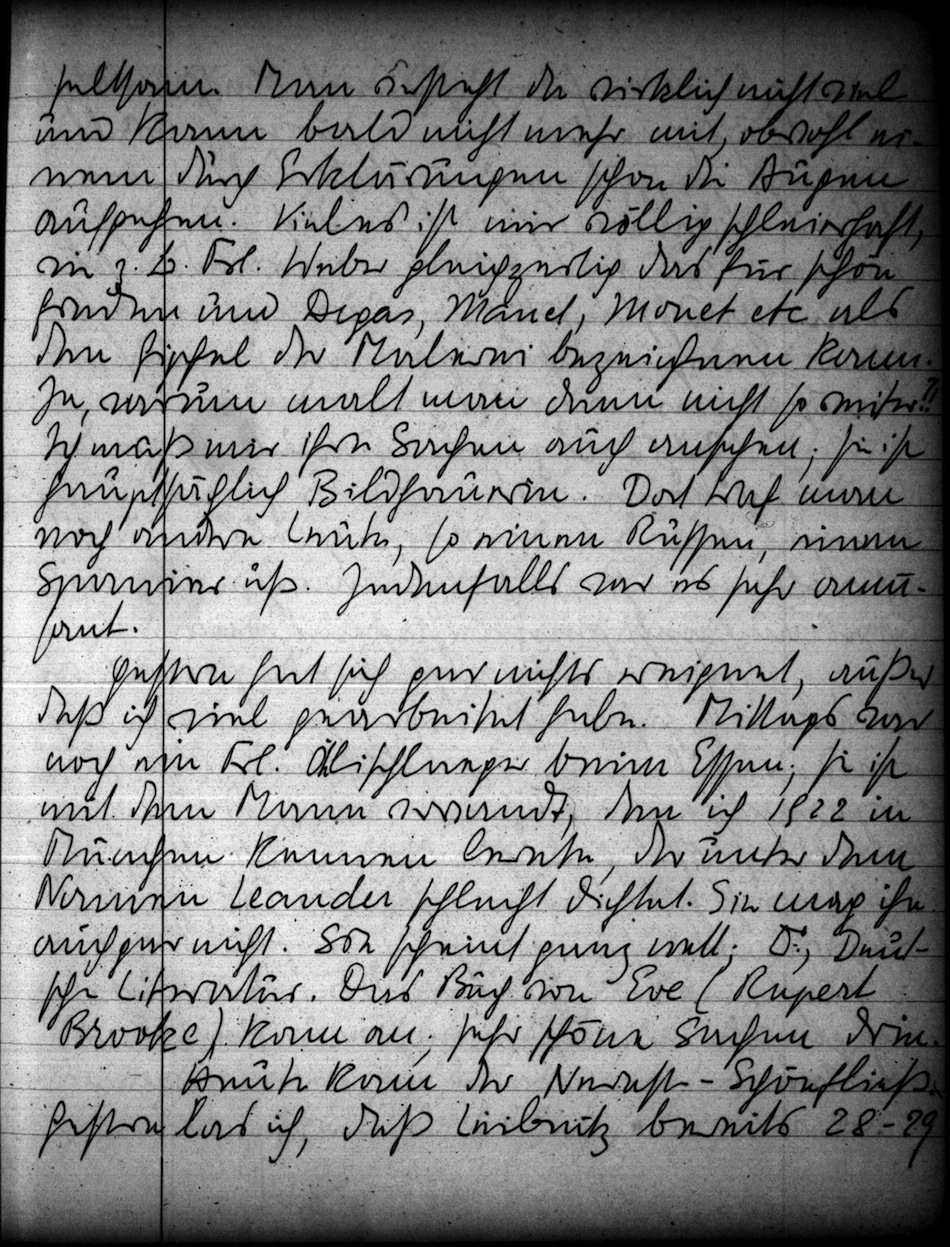 seltsam. Man versteht da wirklich nicht viel
und kann bald nicht mehr mit, obwohl ei-
nem durch Erklärungen schon die Augen
aufgehen. Vieles ist mir völlig schleierhaft,
wie z. B. Frl. Weber gleichzeitig das für schön
finden und Degas, Manet, Monet etc als
den Gipfel der Malerei bezeichnen kann.
Ja, warum malt man dann nicht so weiter?!
Ich muß mir ihre Sachen auch ansehen; sie ist
hauptsächlich Bildhauerin. Dort traf man
noch andere Leute, so einen Russen, einen
Spanier usf. Jedenfalls war es sehr amü-
sant.
Gestern hat sich gar nichts ereignet, außer
daß ich viel gearbeitet habe. Mittags war
noch ein Frl. beim Essen; sie ist
mit dem Mann verwandt, den ich 1922 in
München kennen lernte, der unter dem
Namen Leander schlecht dichtet. Sie mag ihn
auch gar nicht. Sie scheint ganz nett; Dr., Deut-
sche Literatur. Das Buch von Eve (Rupert
Brooke) kam an; sehr schöne Sachen drin.
Heute kam der Nernst-Schönfließ.
Gestern las ich, daß Leibnitz bereits 28-29